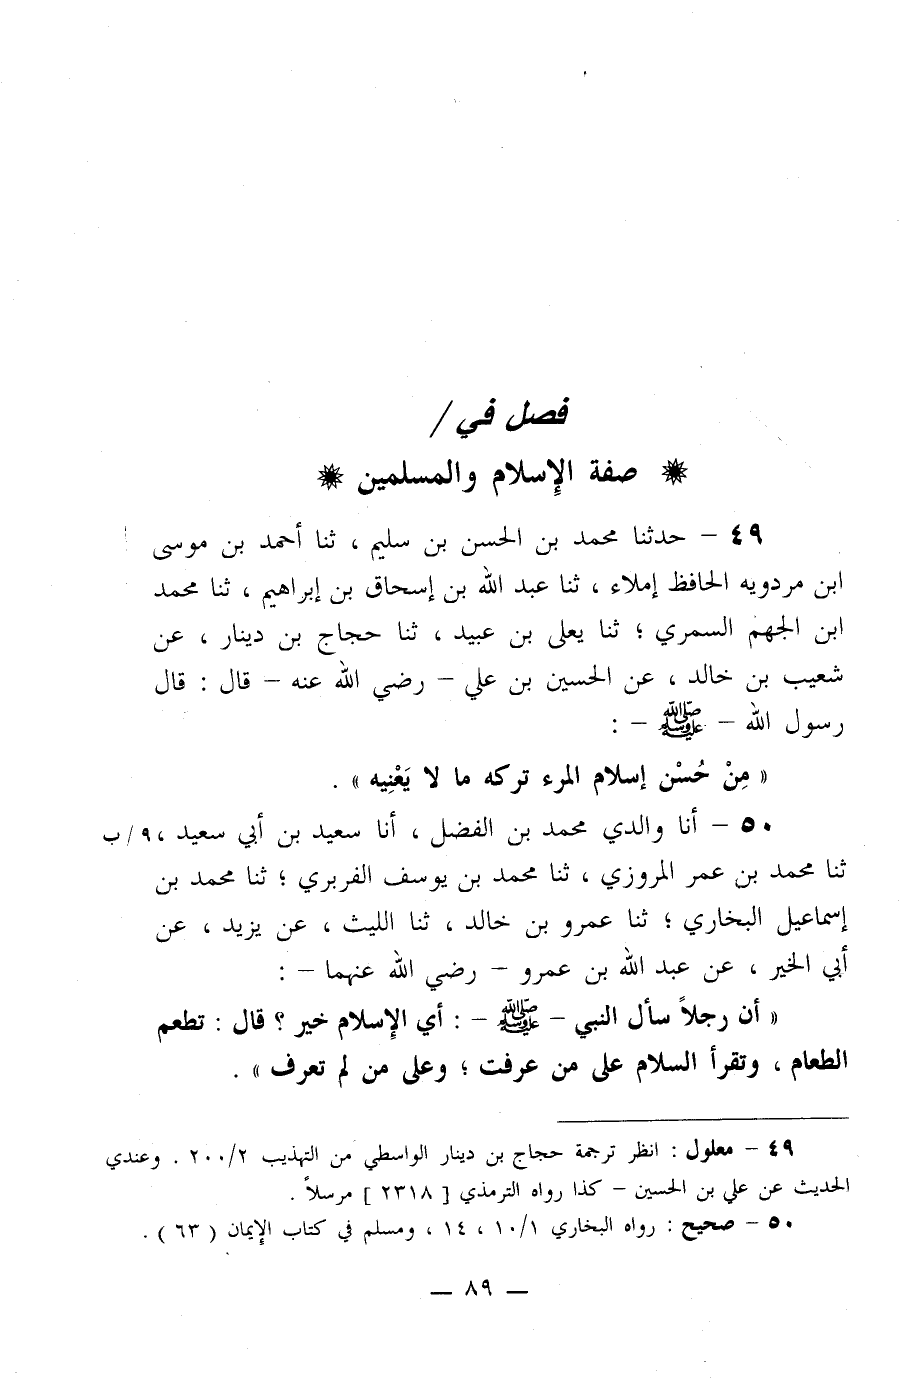 فصل في /
❋ صفة الإسلام والمسلمين ❋
٤٩ – حدثنا محمد بن الحسن بن سليم ، ثنا أحمد بن موسى
ابن مردويه الحافظ إملاء ، ثنا عبد الله بن إسحاق بن إبراهيم ، ثنا محمد
ابن الجهم السمري ؛ ثنا يعلى بن عبيد ، ثنا حجاج بن دينار ، عن
شعيب بن خالد ، عن الحسين بن علي – رضي الله عنه – قال : قال
رسول الله – ﷺ – :
« مِنْ حُسْن إسلام المرء تركه ما لا يَعْنِيه » .
٥٠ – أنا والدي محمد بن الفضل ، أنا سعيد بن أبي سعيد ، ٩/ب
ثنا محمد بن عمر المروزي ، ثنا محمد بن يوسف الفربري ؛ ثنا محمد بن
إسماعيل البخاري ؛ ثنا عمرو بن خالد ، ثنا الليث ، عن يزيد ، عن
أبي الخير ، عن عبد الله بن عمرو – رضي الله عنهما – :
« أن رجلاً سأل النبي – ﷺ – : أي الإسلام خير ؟ قال : تطعم
الطعام ، وتقرأ السلام على من عرفت ؛ وعلى من لم تعرف » .
٤٩ – معلول : انظر ترجمة حجاج بن دينار الواسطي من التهذيب ٢٠٠/٢ . وعندي
الحديث عن علي بن الحسين – كذا رواه الترمذي [ ٢٣١٨ ] مرسلاً .
٥٠ – صحيح : رواه البخاري ١٠/١ ، ١٤ ، ومسلم في كتاب الإيمان ( ٦٣ ) .
— ٨٩ —